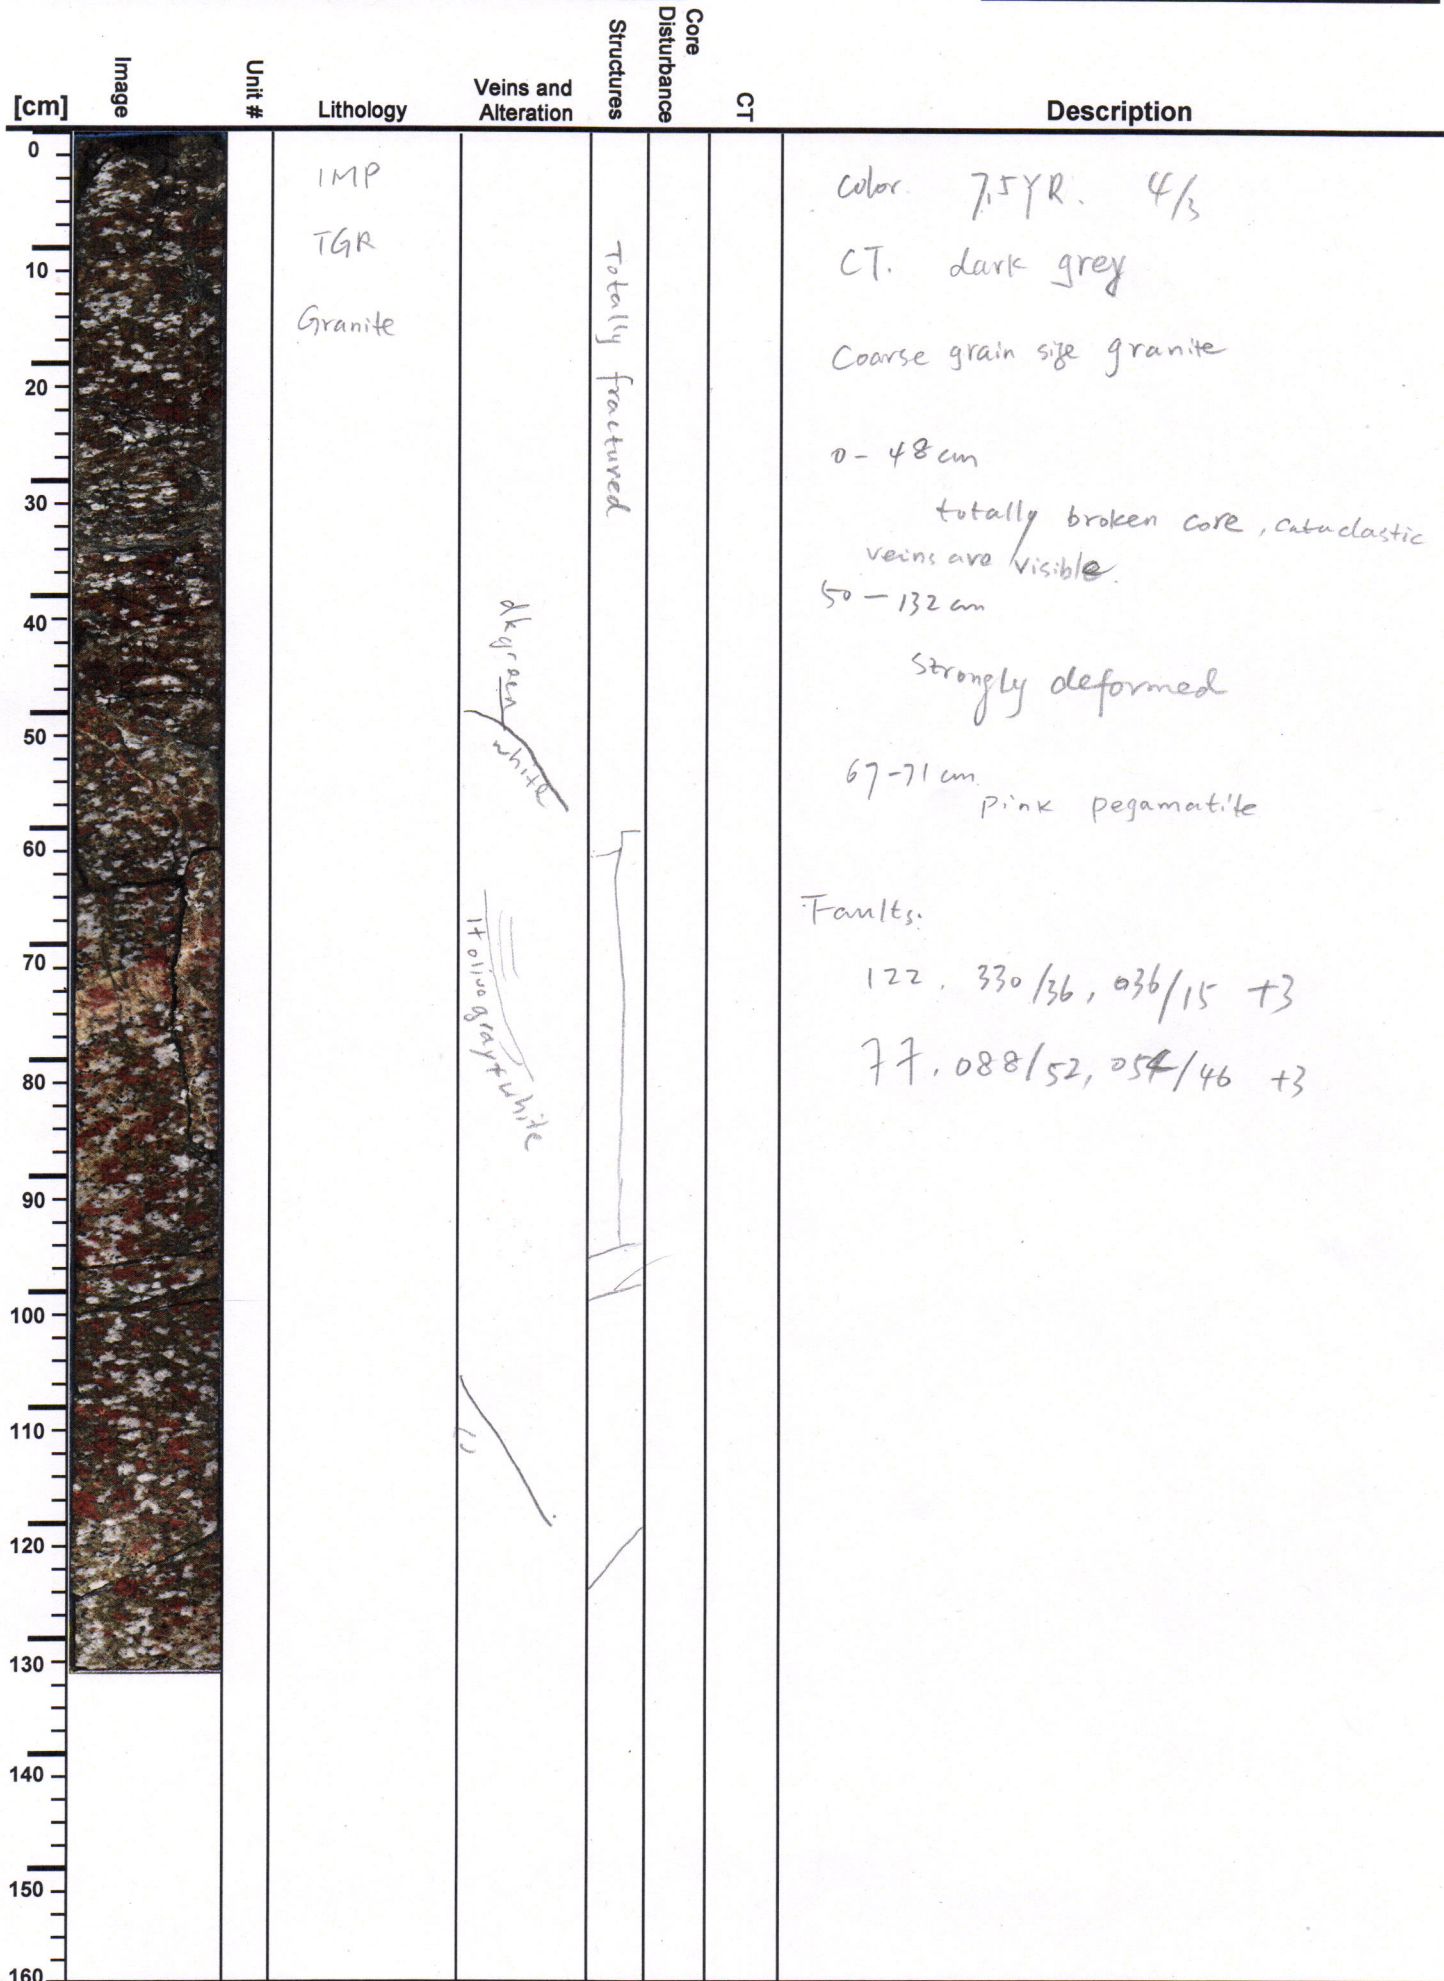 [cm]
Image
Unit #
Lithology
Veins and
Alteration
Structures
Core
Disturbance
CT
Description
0
10
20
30
40
50
60
70
80
90
100
110
120
130
140
150
160
IMP
TGR
Granite
dkgreen
white
lt olive gray + white
Totally fractured
Color. 7.5YR. 4/3
CT. dark grey
Coarse grain size granite
0 - 48 cm
totally broken core, cataclastic
veins are visible.
50 - 132 cm
Strongly deformed
67-71 cm
pink pegamatite
Faults.
122. 330/36, 036/15 +3
77. 088/52, 054/46 +3